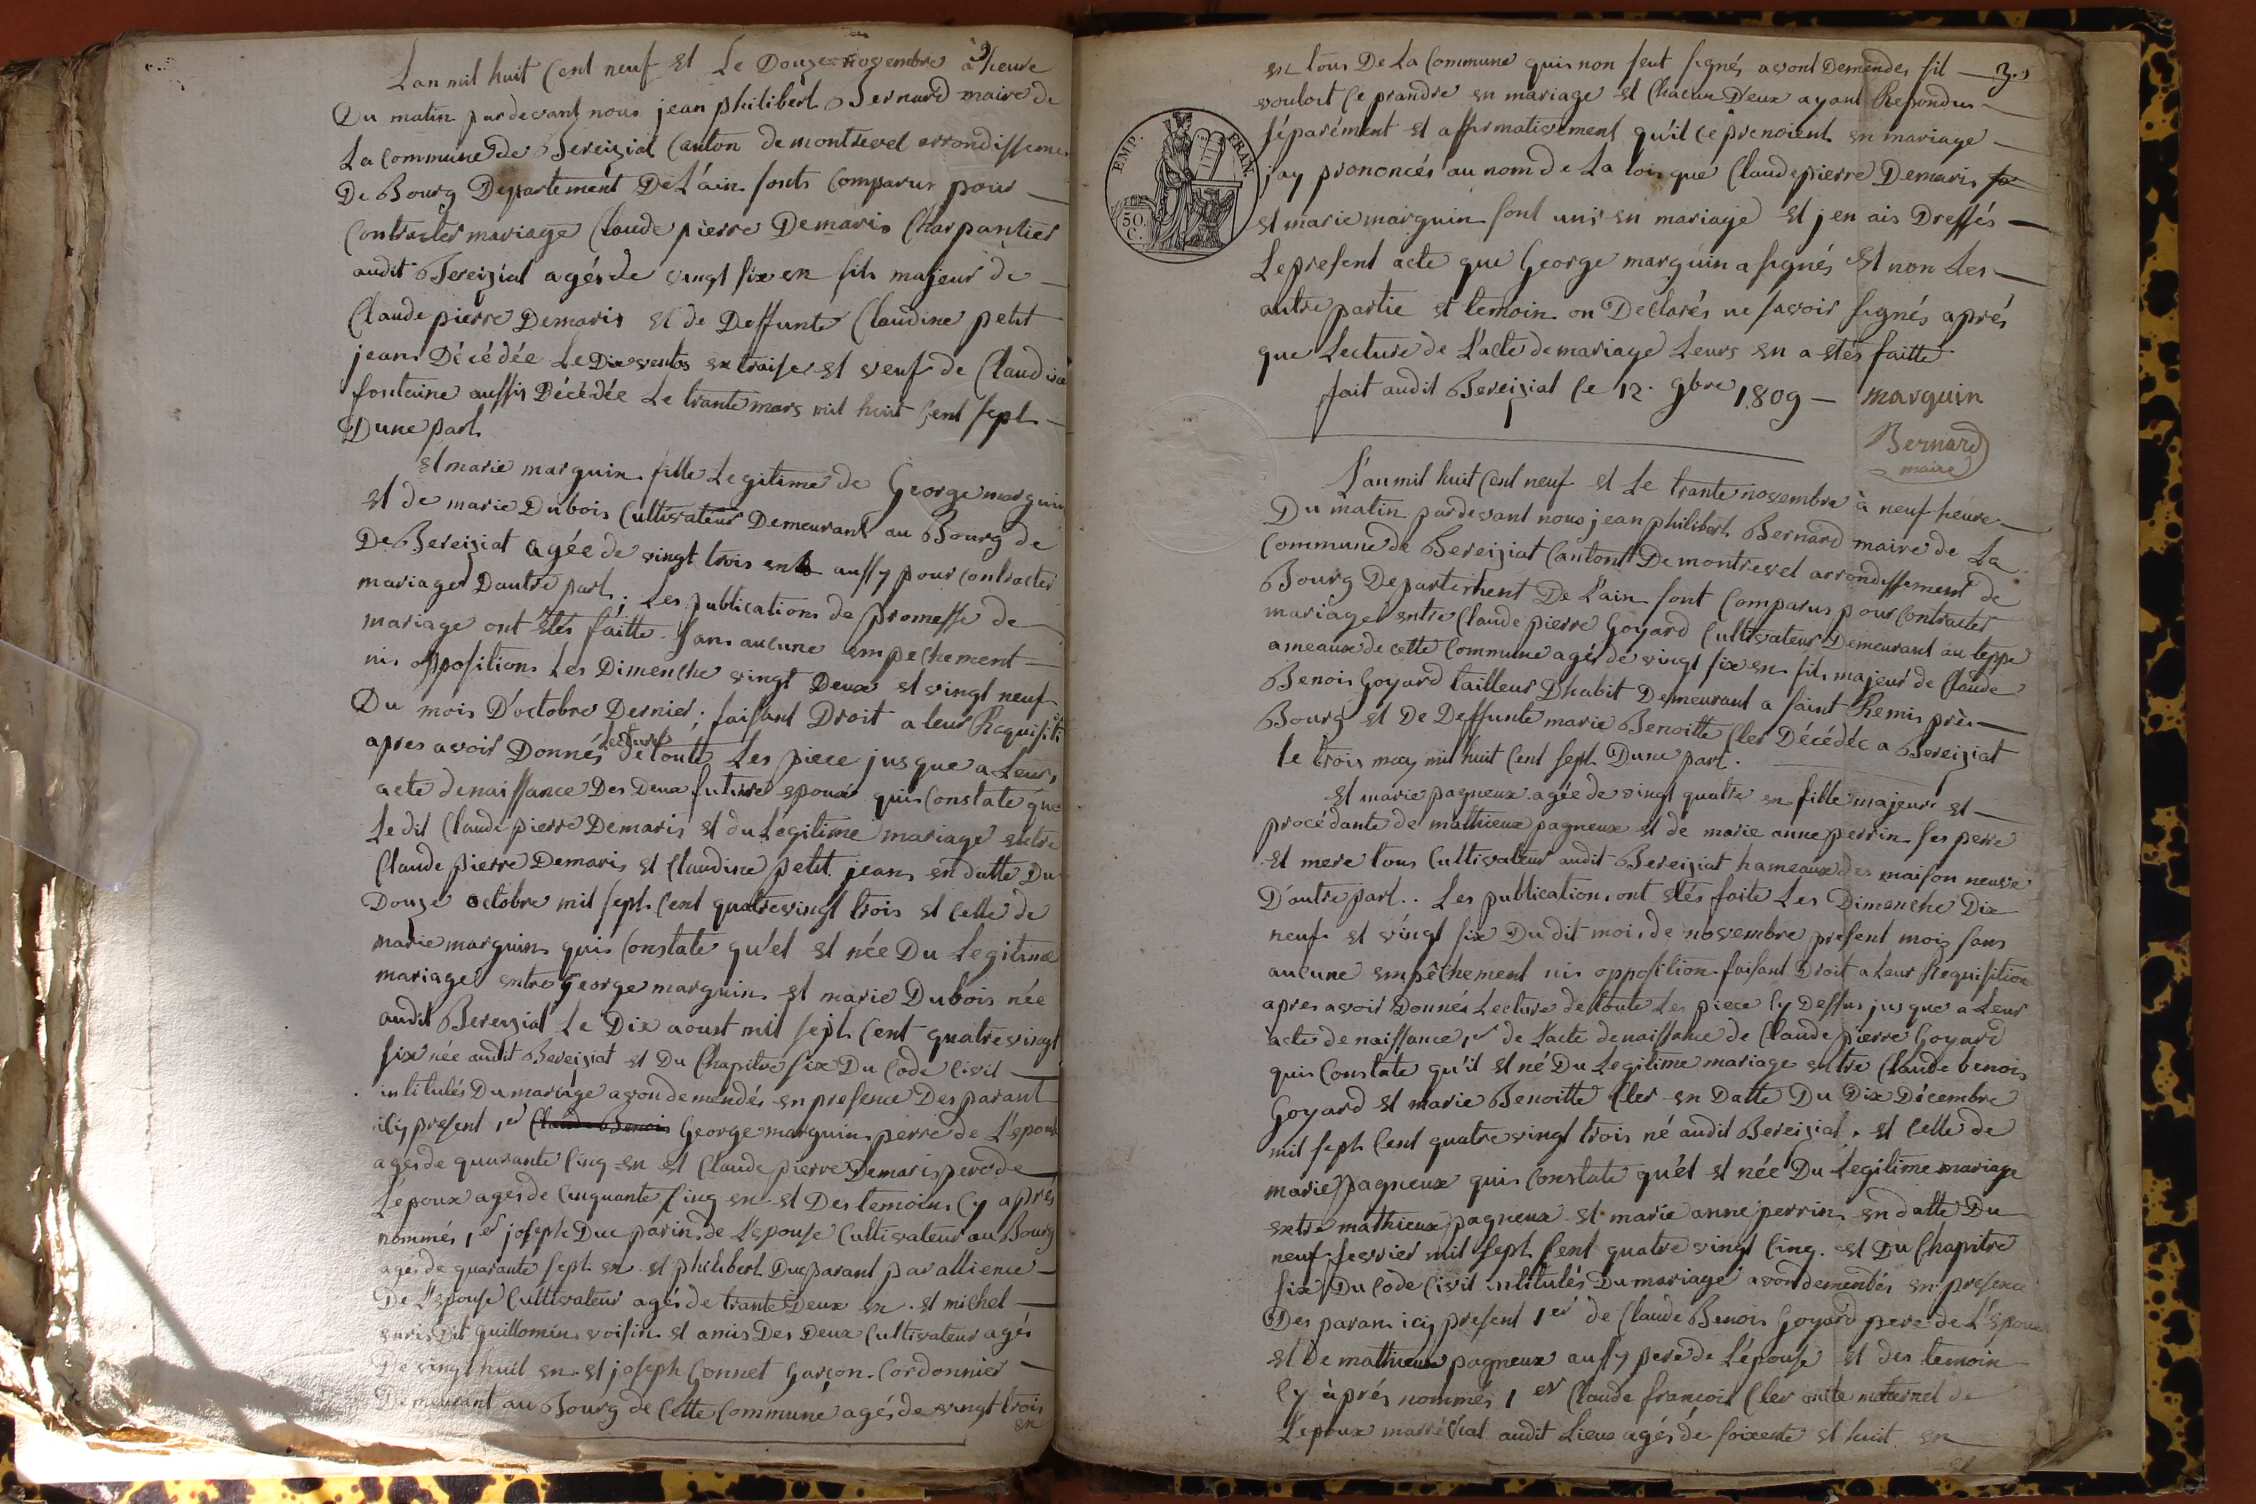 Lan mil huit Cent neuf et Le Douze novembre à 9 heure
Du matin pardevant nous jean philibert Bernard maire de
La Commune de Bereiziat Canton de montrevel arrondisseme
De Bourg Departement De L'ain sonts Comparus pour
Contracter mariage Claude pierre Demaris Charpantier
audit Bereiziat agés de vingt six en fils majeur de
Claude pierre Demaris et de Deffunte Claudine petit
jean Décédée Le Dix ventos en traise et veuf de Claudine
fontaine aussis Décédée Le trante mars mil huit Cent sept
Dune part
et marie marguin fille Legitime de George marguin
et de marie Dubois Cultivateur Demeurant au Bourg de
De Bereiziat agée de vingt trois en aussy pour contracter
mariage Dautre part; Les publications de promesse de
mariage ont étés faitte sans aucune empechement
nis oppositions Les Dimenche vingt Deux et vingt neuf
Du mois D'octobre Dernier; faisant Droit a leur Requisiti
apres avoir Donnés Lecture de toutte Les piece jusque a Leurs
acte de naissance Des Deux future epoux quis Constate que
Le dit Claude pierre Demaris et du Légitime mariage entre
Claude pierre Demaris et Claudine petit jean en datte Du
Douze octobre mil sept Cent quatrevingt trois et Celle de
marie marguin quis Constate qu'el et née Du Legitime
mariage entre George marguin et marie Dubois née
audit Bereiziat Le Dix aoust mil sept Cent quatrevingt
six née audit Bereiziat et Du Chapitre six Du Code Civil
intitulés Du mariage avon demendés en presence Des parant
icy present 1er Claude Benois George marguin perre de L'epouse
agés de quarante Cinq en et Claude pierre Demaris pere de
L'epoux agés de Cinquante Cinq en et Des temoins Cy aprés
nommés 1er joseph Duc parin de L'epouse Cultivateur au Bourg
agés de quarante sept en et philibert Duc parant par allience
De L'epouse Cultivateur agés de trante Deux en et michel
dit guillomin voisin et amis Des Deux Cultivateur agés
De vingt huit en et joseph Gonnet Garçon Cordonnier
Demeurant au Bourg de Cette Commune agés de vingt trois
en
3.
en tous De La Commune quis non seut signés avont Demendés sil
vouloit Ce prandre en mariage et Chacun D'eux ayant Repondus
séparément et affirmativement qu'il Ce prenoient en mariage
j'ay prononcés au nom de La lois que Claude pierre Demaris
et marie marguin sont unis en mariage et j'en ais Dressés
Le present acte que George marguin a signés et non Les
autre partie et temoin on Déclarés ne savoir signés aprés
que Lecture de L'acte de mariage Leurs en a étés faitte
fait audit Bereiziat Le 12. 9bre 1809 — marguin
Bernard
maire
EMP. FRAN.
50 C.
L'an mil huit Cent neuf et Le trante novembre à neuf heure
Du matin pardevant nous jean philibert Bernard maire de La
Commune de Bereiziat Canton De montrevel arrondissement de
Bourg Departement De L'ain sont Comparus pour Contracter
mariage entre Claude pierre Goyard Cultivateur Demeurant au teppe
ameaux de cette Commune agés de vingt six en fils majeur de Claude
Benois Goyard tailleur Dhabit Demeurant a saint Remis près
Bourg et De Deffunte marie Benoitte Cler Décédée a Bereiziat
le trois may mil huit Cent sept Dune part.
et marie pagneux agée de vingt quatre en fille majeure et
procédante de mathieux pagneux et de marie anne perrin ses perre
et mere tous Cultivateur audit Bereiziat hameaux des maison neuve
D'autre part.. Les publication ont étés faite Les Dimenche Dix
neuf et vingt six Du dit mois de novembre présent mois sans
aucune empêchement nis opposition faisant Droit a Leur Requisition
apres avoir Donnés Lecture de toute Les piece Cy Dessus jusque a Leur
acte de naissance, 1er de L'acte de naissance de Claude pierre Goyard
quis Constate qu'il et né Du Legitime mariage entre Claude benois
Goyard et marie Benoitte Cler en Datte Du Dix Décembre
mil sept Cent quatre vingt trois né audit Bereiziat. et Celle de
marie pagneux quis Constate qu'el et née Du Legitime mariage
entre mathieux pagneux et marie anne perrin en datte Du
neuf fevrier mil sept Cent quatre vingt Cinq. et Du Chapitre
six Du Code Civil intitulés Du mariage avon demendés en presence
Des paran icy present 1er de Claude Benois Goyard pere de L'epoux
et De mathieux pagneux aussy pere de L'épouse et des temoin
Cy après nommés 1er Claude francois Cler oncle maternel de
L'epoux marréchal audit Lieux agés de soixente et huit en